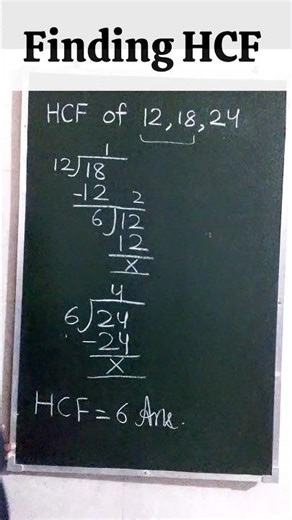 Finding HCF
HCF of 12, 18, 24
1
12)18
-12 2
6)12
12
X
4
6)24
-24
X
HCF = 6 Ans.